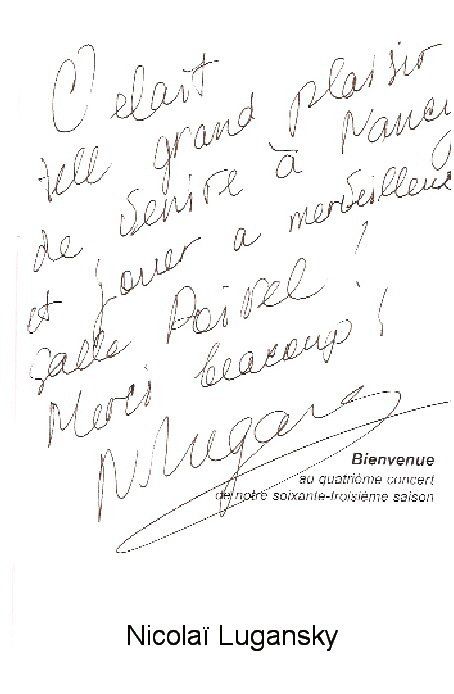 C'etait
tell grand plaisir
de venire à Nancy
et jouer a merveilleuse
salle Poirel !
Merci beacoup !
N Lugans
Bienvenue
au quatrième concert
de notre soixante-troisième saison
Nicolaï Lugansky